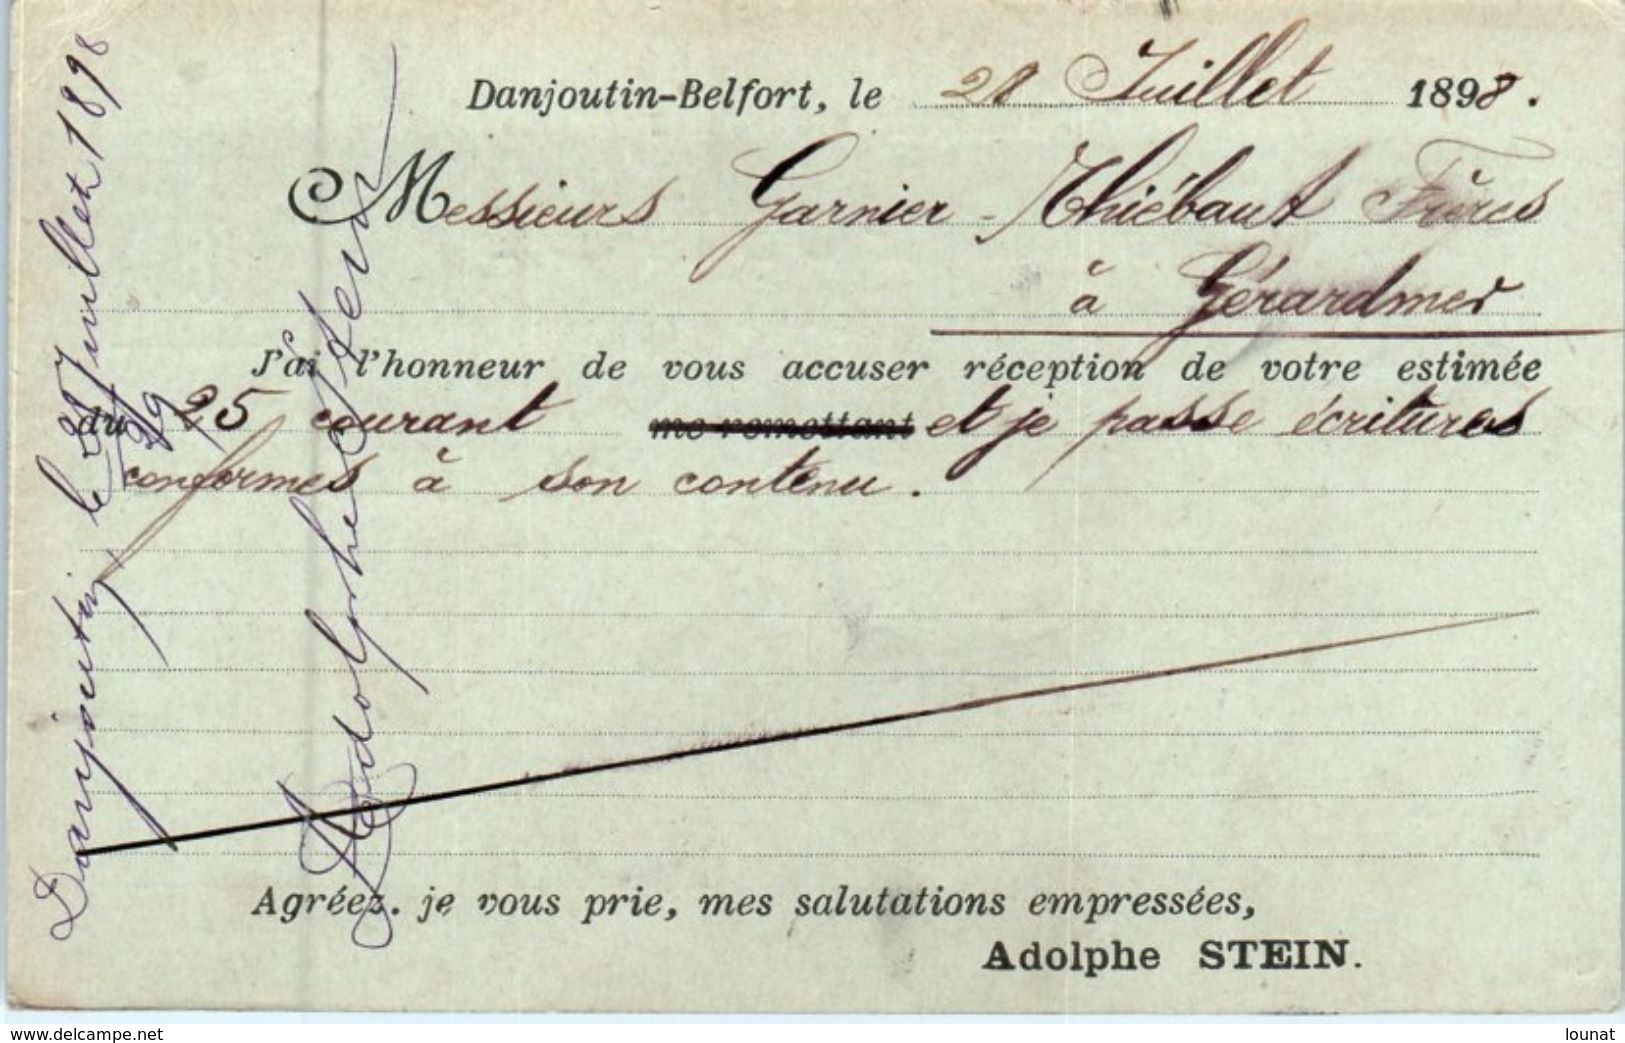 Danjoutin-Belfort, le 28 Juillet 1898.
Messieurs Garnier-Thiébaut Frères
à Gérardmer
J'ai l'honneur de vous accuser réception de votre estimée
du 25 courant me remettant et je passe écritures
conformes à son contenu.
Agréez, je vous prie, mes salutations empressées,
Adolphe STEIN.
Danjoutin le 28 Juillet 1898
29/7
Adolphe Stein
www.delcampe.net
lounat